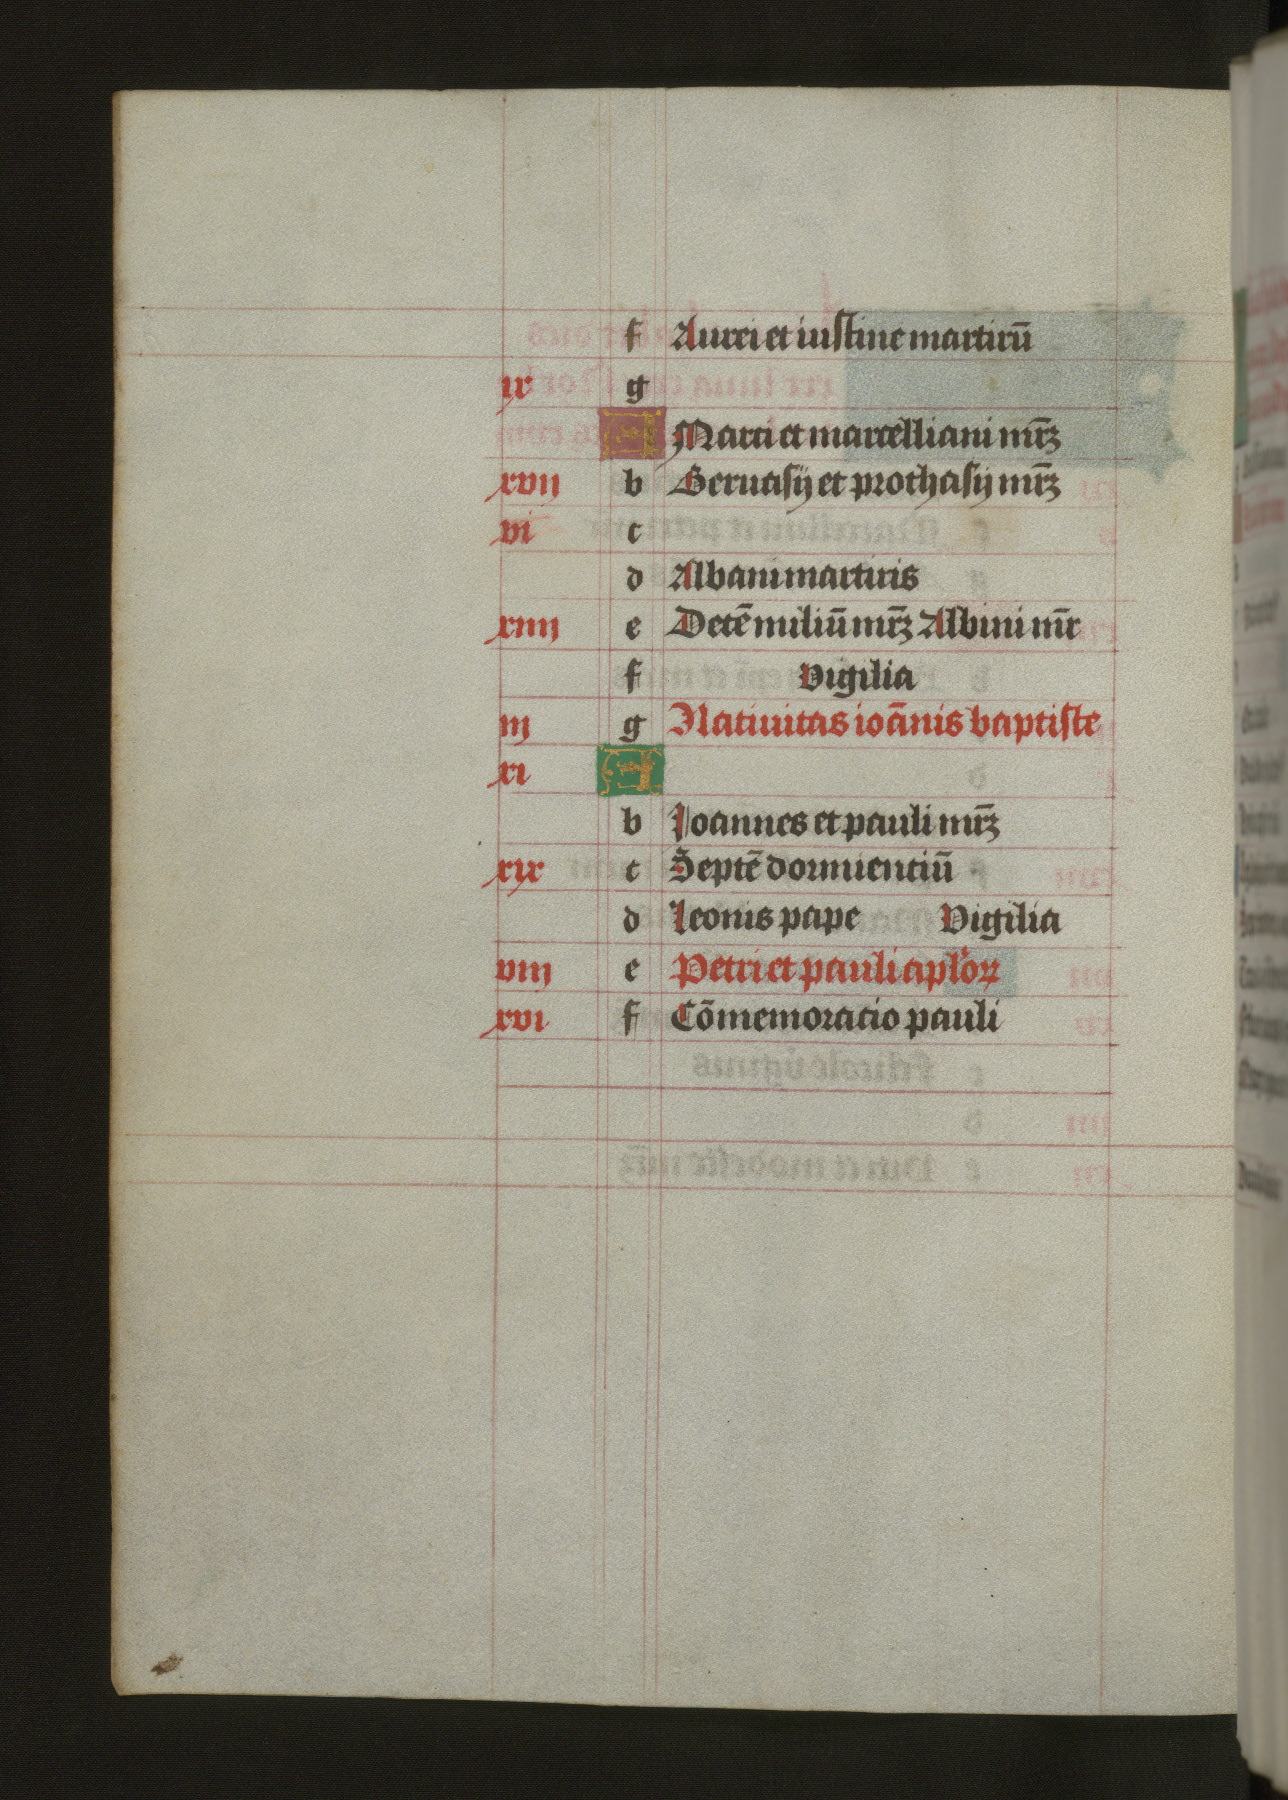 f Aurei et iustine martirū
ix g
A Marci et marcelliani mr̄ꝫ
xvij b Geruasij et prothasij mr̄ꝫ
vi c
d Albani martiris
xiiij e Decē miliū mr̄ꝫ Albini mr̄
f Vigilia
iij g Natiuitas ioānis baptiste
xi A
b Joannes et pauli mr̄ꝫ
xix c Septē dormientiū
d Leonis pape Vigilia
viij e Petri et pauli aplōꝝ
xvi f Cōmemoratio pauli